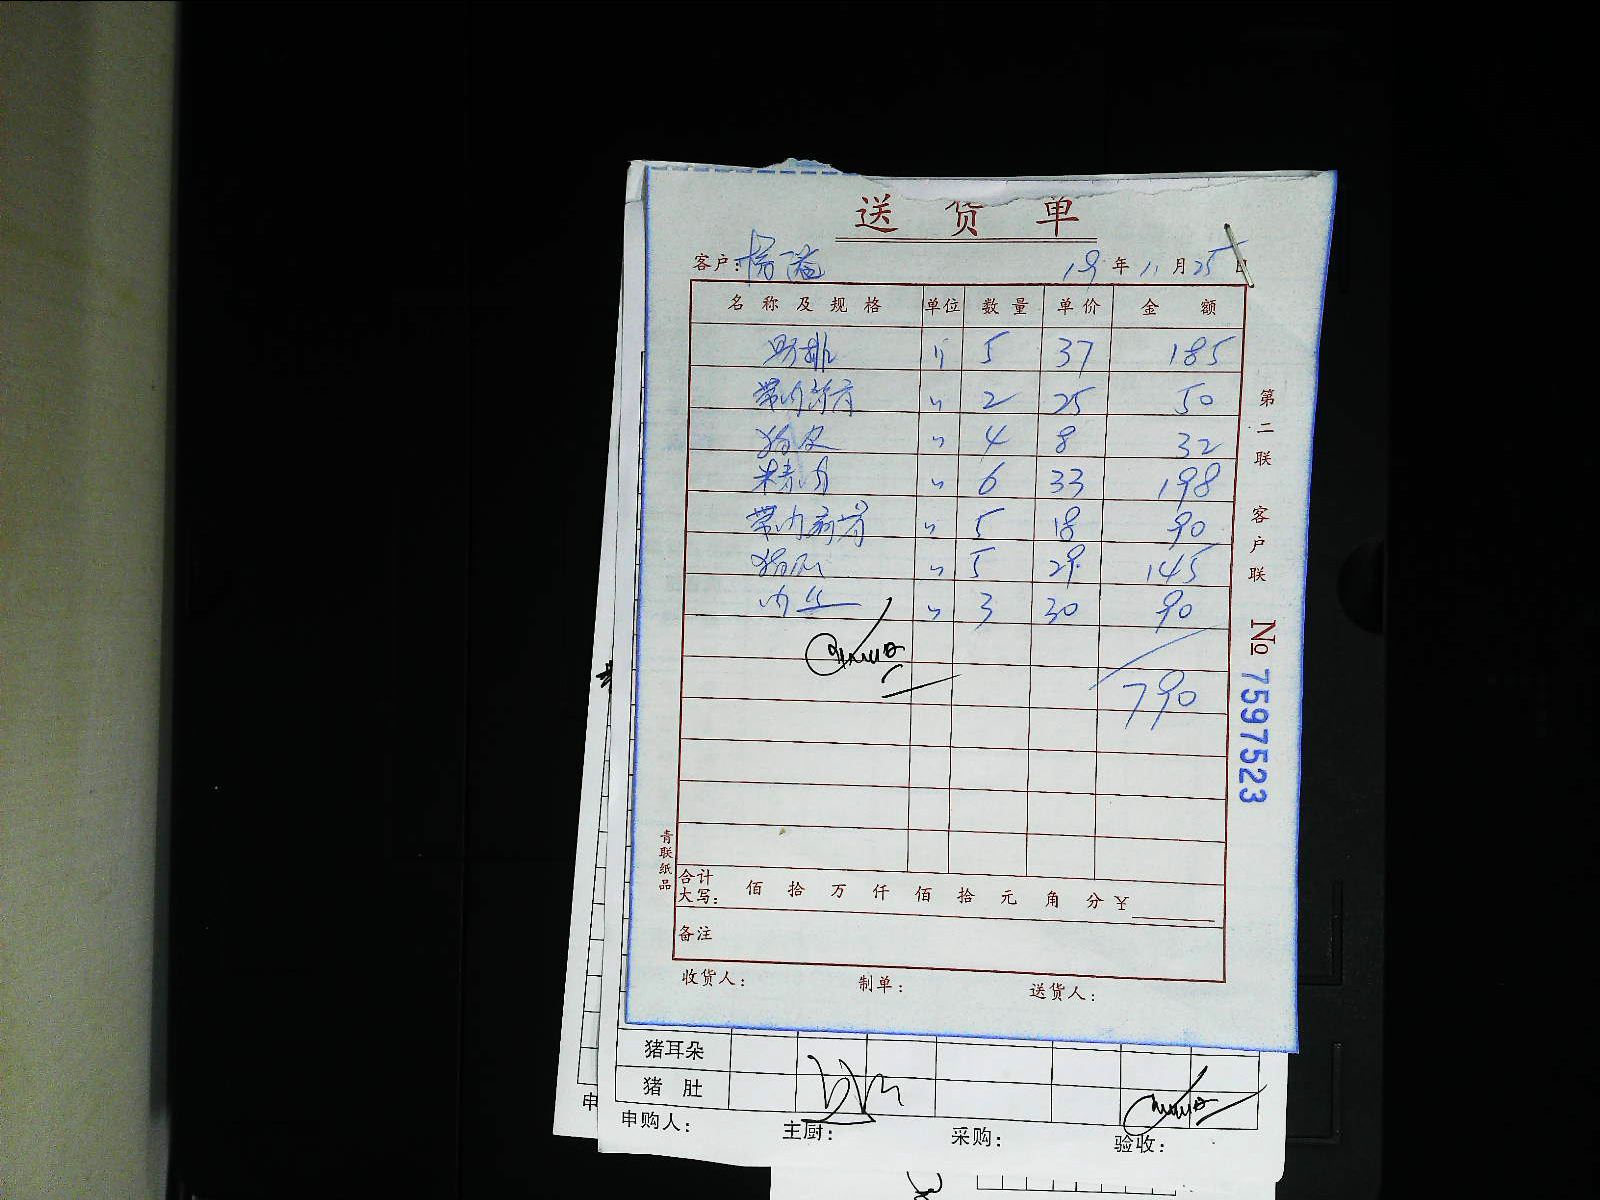 送货单
客户: 19年11月25日
名称及规格 单位 数量 单价 金额
肋排 斤 5 37 185
带肉 〃 2 25 50
猪皮 〃 4 8 32
精肉 〃 6 33 198
带肉 〃 5 18 90
猪 〃 5 29 145
肉丝 〃 3 30 90
790
第二联 客户联
№ 7597523
青联纸品
合计大写: 佰 拾 万 仟 佰 拾 元 角 分 ¥
备注
收货人: 制单: 送货人:
猪耳朵
猪肚
申
申购人: 主厨: 采购: 验收: